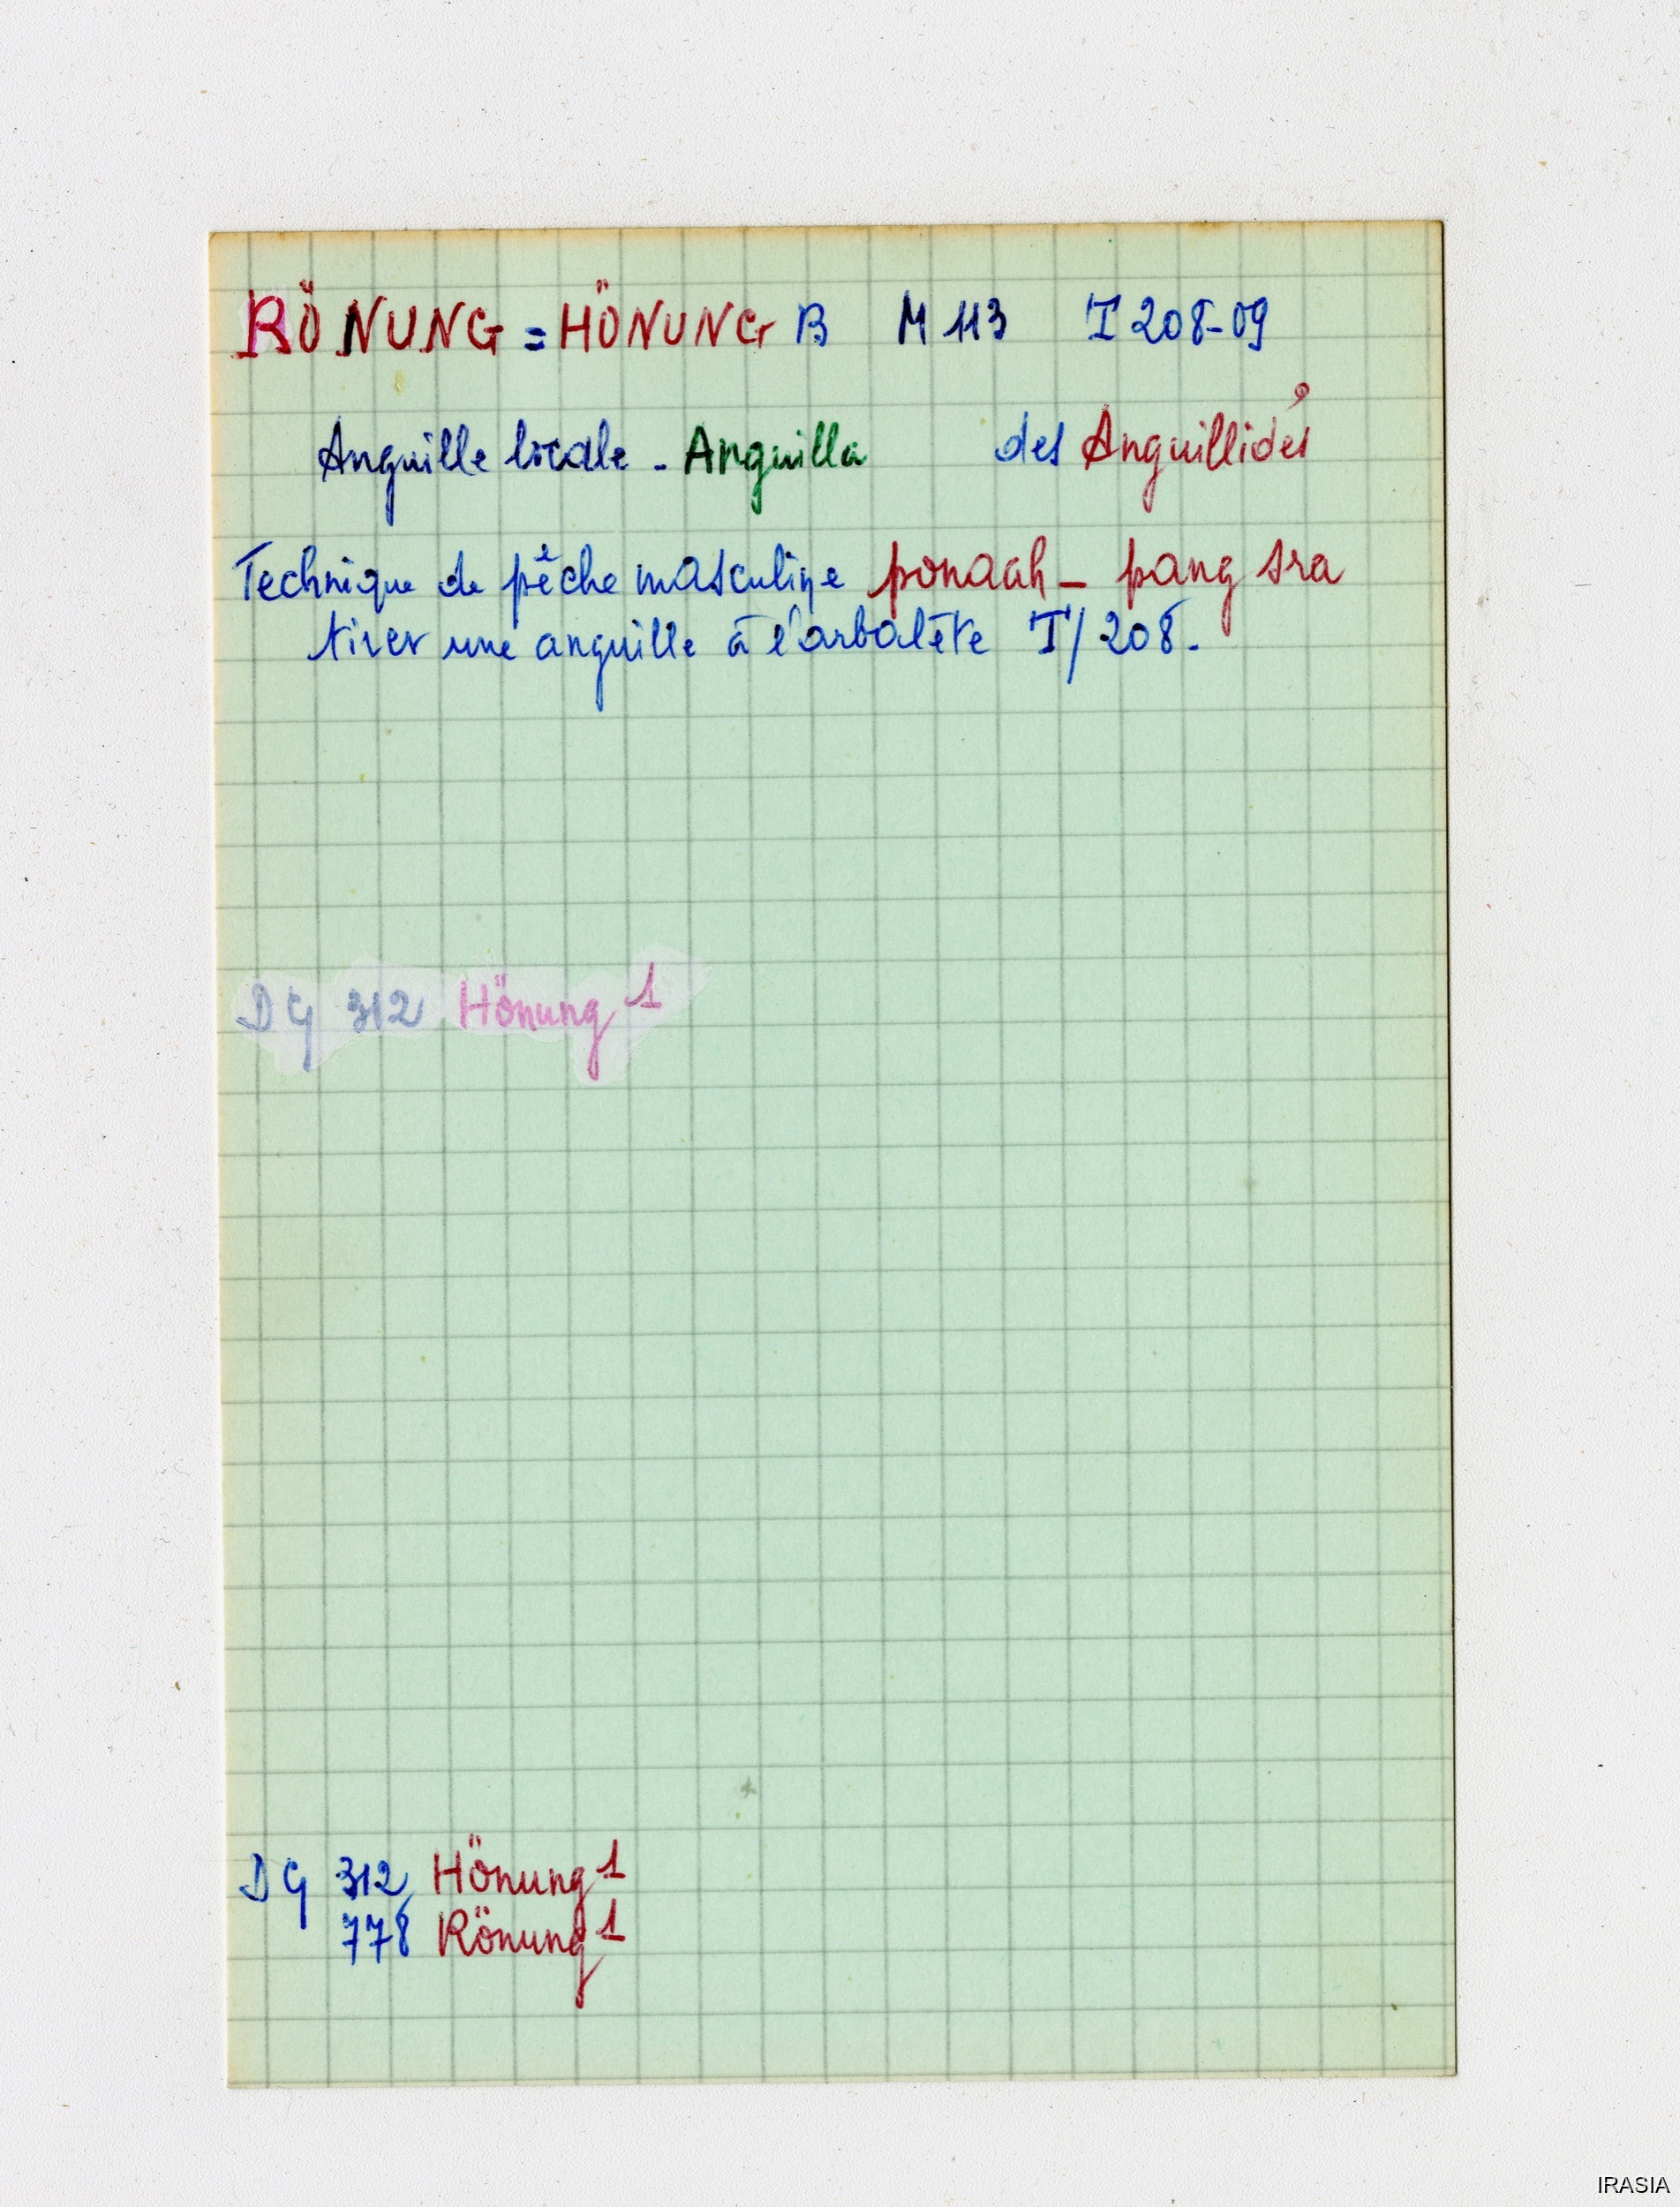 RÖNUNG = HÖNUNG B M 113 T 208-09
Anguille locale - Anguilla des Anguillidés
Technique de pêche masculine ponaah - pang sra
tirer une anguille à l'arbalète T/208.
DG 312 Hönung 1
DG 312 Hönung 1
778 Rönung 1
IRASIA